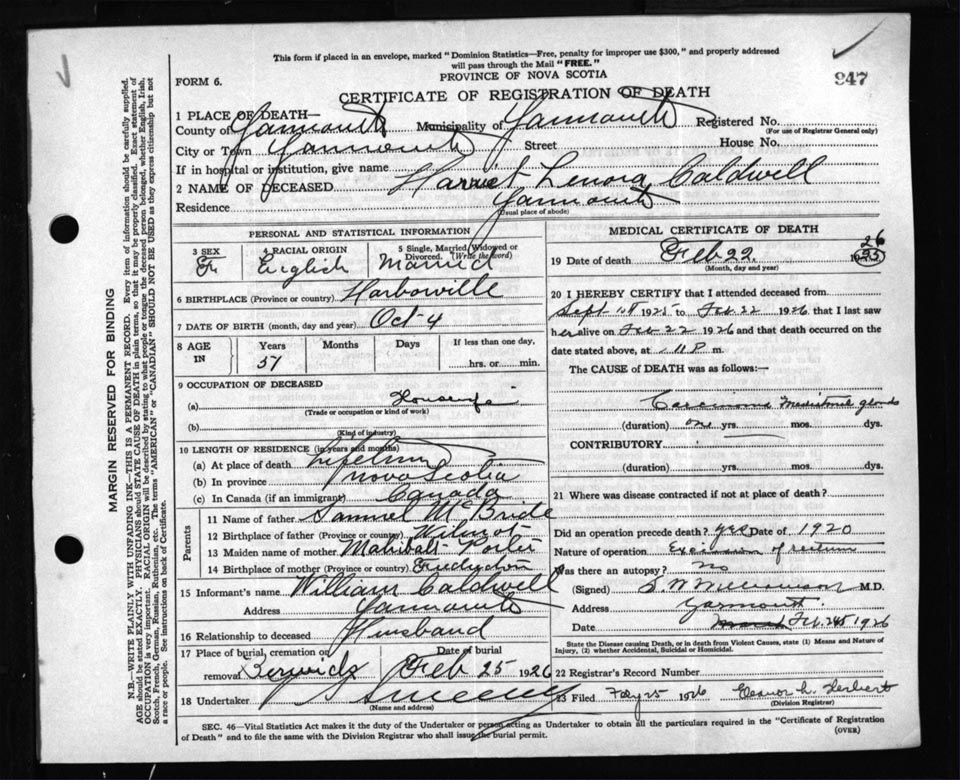 This form if placed in an envelope, marked "Dominion Statistics—Free, penalty for improper use $300," and properly addressed
will pass through the Mail "FREE."
947
FORM 6.
PROVINCE OF NOVA SCOTIA
CERTIFICATE OF REGISTRATION OF DEATH
1 PLACE OF DEATH—
County of Yarmouth Municipality of Yarmouth Registered No.
(For use of Registrar General only)
City or Town Yarmouth Street House No.
If in hospital or institution, give name
2 NAME OF DECEASED Harriet Lenora Caldwell
Residence Yarmouth
(Usual place of abode)
PERSONAL AND STATISTICAL INFORMATION
3 SEX 4 RACIAL ORIGIN 5 Single, Married, Widowed or
Divorced. (Write the word)
English Married
6 BIRTHPLACE (Province or country) Harborville
7 DATE OF BIRTH (month, day and year) Oct-4
8 AGE IN Years Months Days If less than one day,
57 hrs. or min.
9 OCCUPATION OF DECEASED
(a) Housewife
(Trade or occupation or kind of work)
(b)
(Kind of industry)
10 LENGTH OF RESIDENCE (in years and months)
(a) At place of death Lifetime
(b) In province Nova Scotia
(c) In Canada (if an immigrant) Canada
Parents
11 Name of father Samuel McBride
12 Birthplace of father (Province or country) Wilmot
13 Maiden name of mother Porter
14 Birthplace of mother (Province or country)
15 Informant's name William Caldwell
Address Yarmouth
16 Relationship to deceased Husband
17 Place of burial, cremation or Date of burial
removal Berwick Feb 25 1926
18 Undertaker Sweeny
(Name and address)
MEDICAL CERTIFICATE OF DEATH
19 Date of death Feb 22 26
(Month, day and year)
20 I HEREBY CERTIFY that I attended deceased from
Sept 1925 to Feb 22 1926, that I last saw
her alive on Feb 22 1926 and that death occurred on the
date stated above, at 11 P m.
The CAUSE of DEATH was as follows:—
Carcinoma glands
(duration) one yrs. mos. dys.
CONTRIBUTORY
(duration) yrs. mos. dys.
21 Where was disease contracted if not at place of death?
Did an operation precede death? yes Date of 1920
Nature of operation Excision of rectum
Was there an autopsy? No
(Signed) S W Williamson M.D.
Address Yarmouth.
Date Feb. 24 1926
State the Disease causing Death, or in Death from Violent Causes, state (1) Means and Nature of
Injury, (2) whether Accidental, Suicidal or Homicidal.
22 Registrar's Record Number
23 Filed Feby 25 1926 Eleanor L. Herbert
(Division Registrar)
SEC. 46—Vital Statistics Act makes it the duty of the Undertaker or person acting as Undertaker to obtain all the particulars required in the "Certificate of Registration
of Death" and to file the same with the Division Registrar who shall issue the burial permit.
(OVER)
MARGIN RESERVED FOR BINDING
N.B.—WRITE PLAINLY WITH UNFADING INK—THIS IS A PERMANENT RECORD. Every item of information should be carefully supplied.
AGE should be stated EXACTLY. PHYSICIANS should STATE CAUSE OF DEATH in plain terms, so that it may be properly classified. Exact statement of
OCCUPATION is very important. RACIAL ORIGIN will be described by stating to what people or tongue the deceased person belonged, whether English, Irish,
Scotch, French, German, Russian, Ruthenian, etc. The terms "AMERICAN" or "CANADIAN" SHOULD NOT BE USED as they express citizenship but not
a race or people. See instructions on back of Certificate.